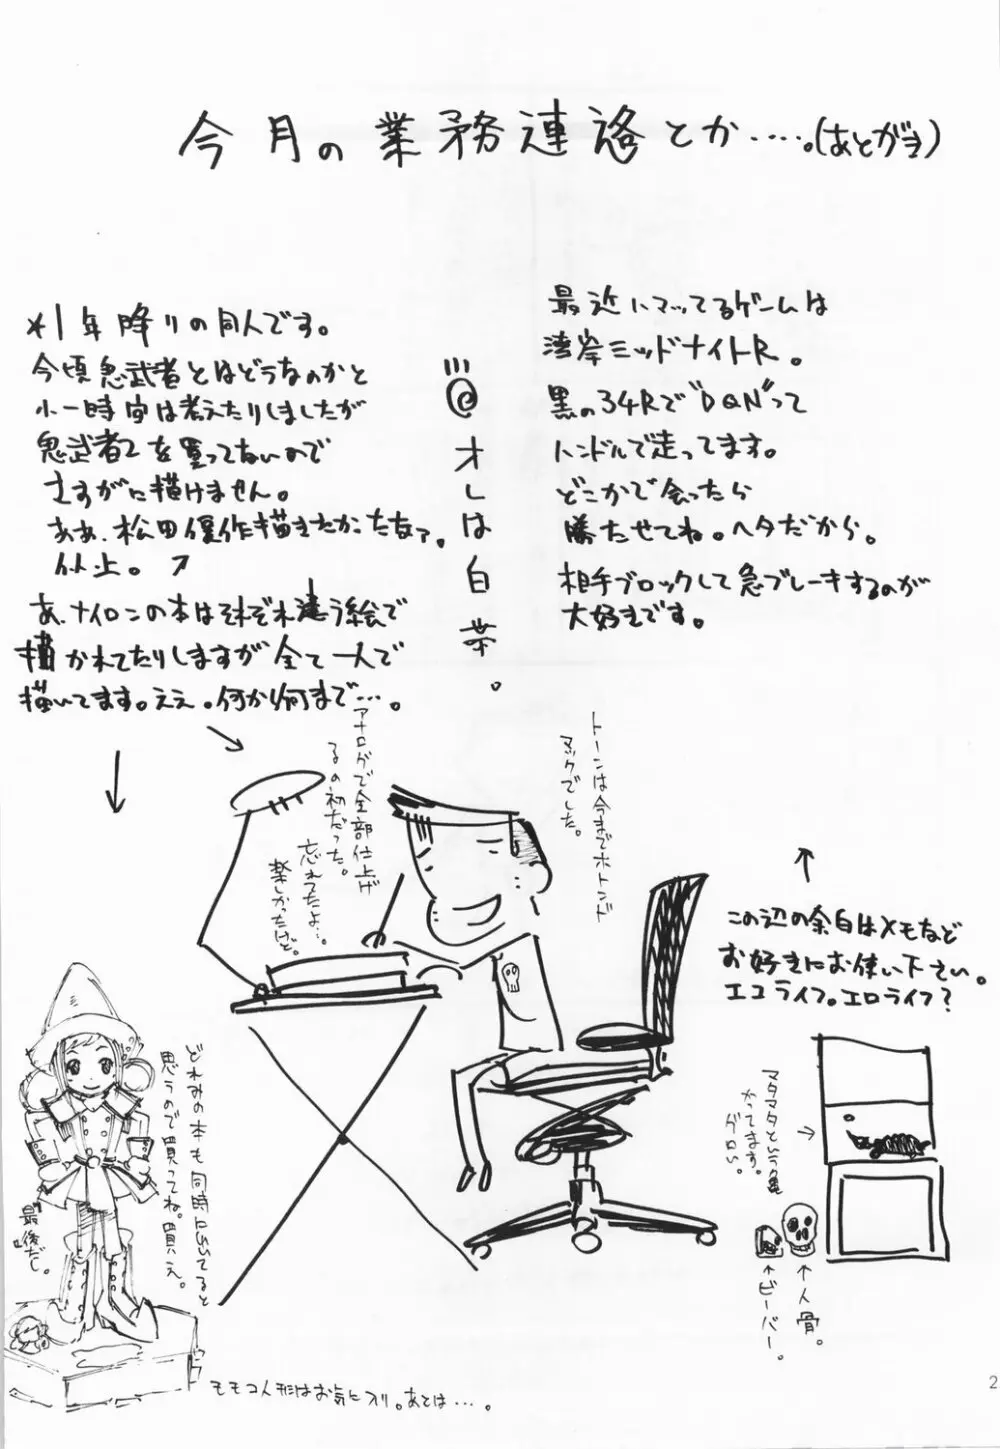 今月の業務連絡とか‥‥。(あとがき)
*1年降りの同人です。
今頃鬼武者とはどうなのかと
小一時間は考えたりしましたが
鬼武者2を買ってないので
さすがに描けません。
ああ、松田優作描きたかったなァ。
以上。
あ、ナイロンの本はそれぞれ違う絵で
描かれてたりしますが全て一人で
描いてます。ええ。何から何まで…。
@オレは白
最近ハマッてるゲームは
湾岸ミッドナイトR。
黒の34Rで"DQN"って
ハンドルで走ってます。
どこかで会ったら
勝たせてね。ヘタだから。
相手ブロックして急ブレーキするのが
大好きです。
トーンは今までホトンド
マックでした。
アナログで全部仕上げ
るの初だった。
忘れてたよ…。
楽しかったけど。
この辺の余白はメモなど
お好きにお使い下さい。
エコライフ。エロライフ?
マタマタという亀
かってます。
グロい。
↑人骨。
↑ビーバー。
どれみの本も同時に出てると
思うので買ってね。買え。
最後だし。
モモコ人形はお気に入り。あとは…。
2